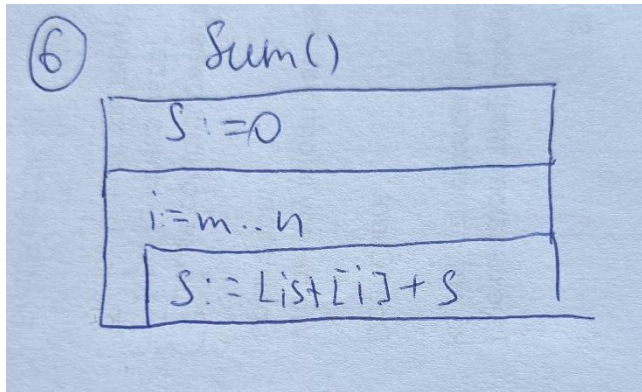 6 Sum()
S:=0
i:=m..n
S:=List[i]+S